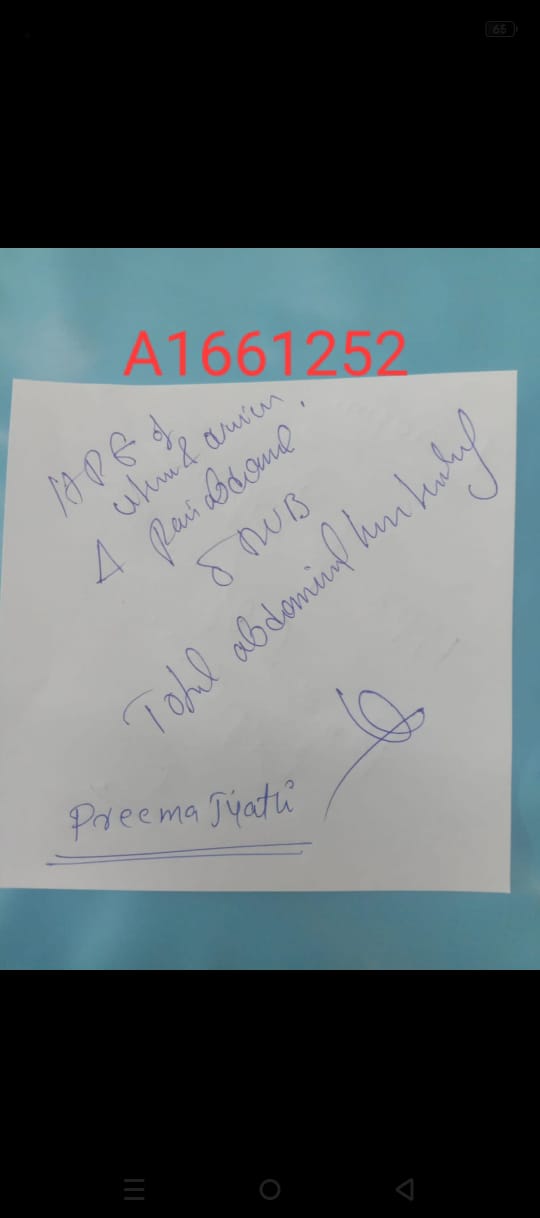 65
A1661252
HPE of
uterus & cervix.
Δ Pain abdomen
DUB
Total abdominal hysterectomy
Preema Jyati